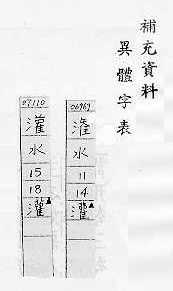 補充資料
異體字表
06969
潅
水
11
14
灌▲
07110
灌
水
15
18
灌▲